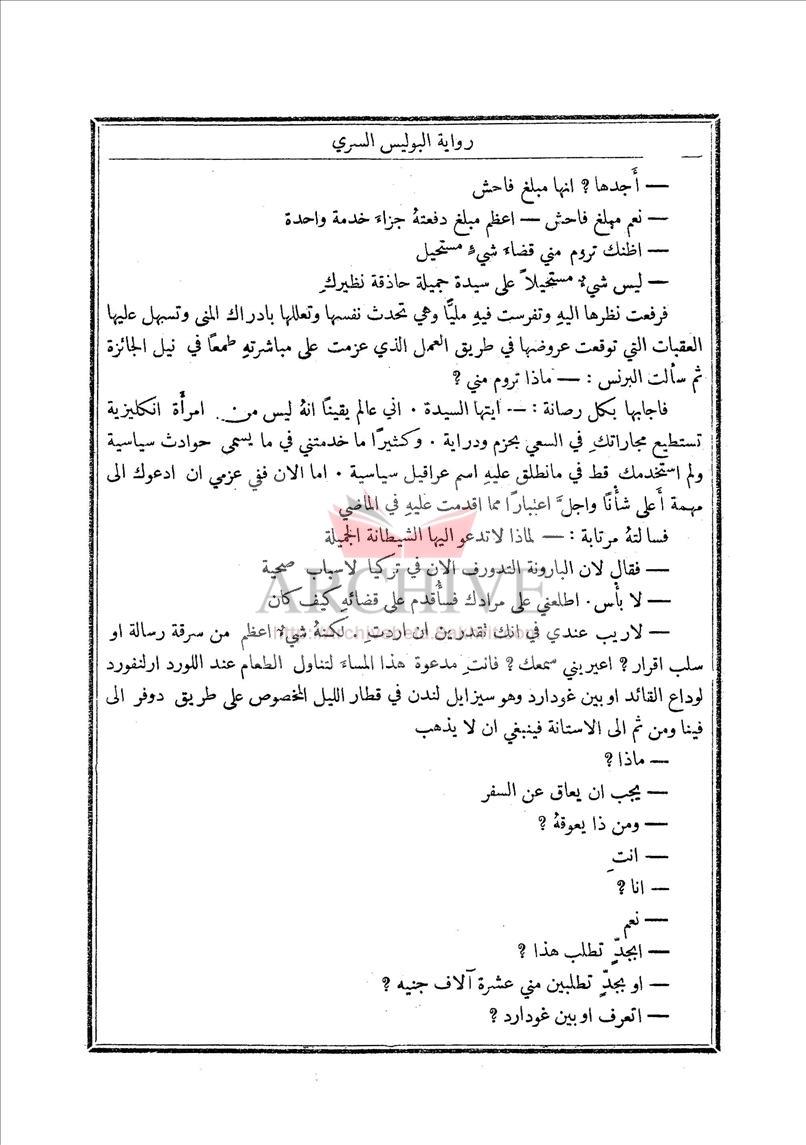 رواية البوليس السري
— أجدها ؟ انها مبلغ فاحش
— نعم مبلغ فاحش — اعظم مبلغ دفعتهُ جزاءَ خدمة واحدة
— اظنك تروم مني قضاءَ شيءٍ مستحيل
— ليس شيءٌ مستحيلاً على سيدة جميلة حاذقة نظيركِ
فرفعت نظرها اليهِ وتفرست فيهِ مليًّا وهي تحدث نفسها وتعللها بادراك المنى وتسهل عليها
العقبات التي توقعت عروضها في طريق العمل الذي عزمت على مباشرتهِ طمعًا في نيل الجائزة
ثم سألت البرنس : — ماذا تروم مني ؟
فاجابها بكل رصانة : — ايتها السيدة . اني عالم يقينًا انهُ ليس من امرأة انكليزية
تستطيع مجاراتكِ في السعي بحزم ودراية . وكثيرًا ما خدمتني في ما يسمى حوادث سياسية
ولم استخدمك قط في مانطلق عليهِ اسم عراقيل سياسية . اما الان ففي عزمي ان ادعوك الى
مهمة أعلى شأنًا واجلَّ اعتبارًا مما اقدمت عليهِ في الماضي
فسالتهُ مرتابة : — لماذا لاتدعو اليها الشيطانة الجميلة
— فقال لان البارونة التدورف الان في تركيا لاسباب صحية
— لا بأس. اطلعني على مرادك فسأقدم على قضائهِ كيف كان
ARCHIVE
— لاريب عندي في انك تقدرين ان اردتِ . لكنهُ شيءٌ اعظم من سرقة رسالة او
سلب اقرار ؟ اعيريني سمعك ؟ فانتِ مدعوة هذا المساءَ لتناول الطعام عند اللورد ارلنفورد
لوداع القائد اوبين غودارد وهو سيزايل لندن في قطار الليل المخصوص على طريق دوفر الى
فينا ومن ثم الى الاستانة فينبغي ان لا يذهب
— ماذا ؟
— يجب ان يعاق عن السفر
— ومن ذا يعوقهُ ؟
— انتِ
— انا ؟
— نعم
— ابجدٍّ تطلب هذا ؟
— او بجدٍّ تطلبين مني عشرة آلاف جنيه ؟
— اتعرف اوبين غودارد ؟